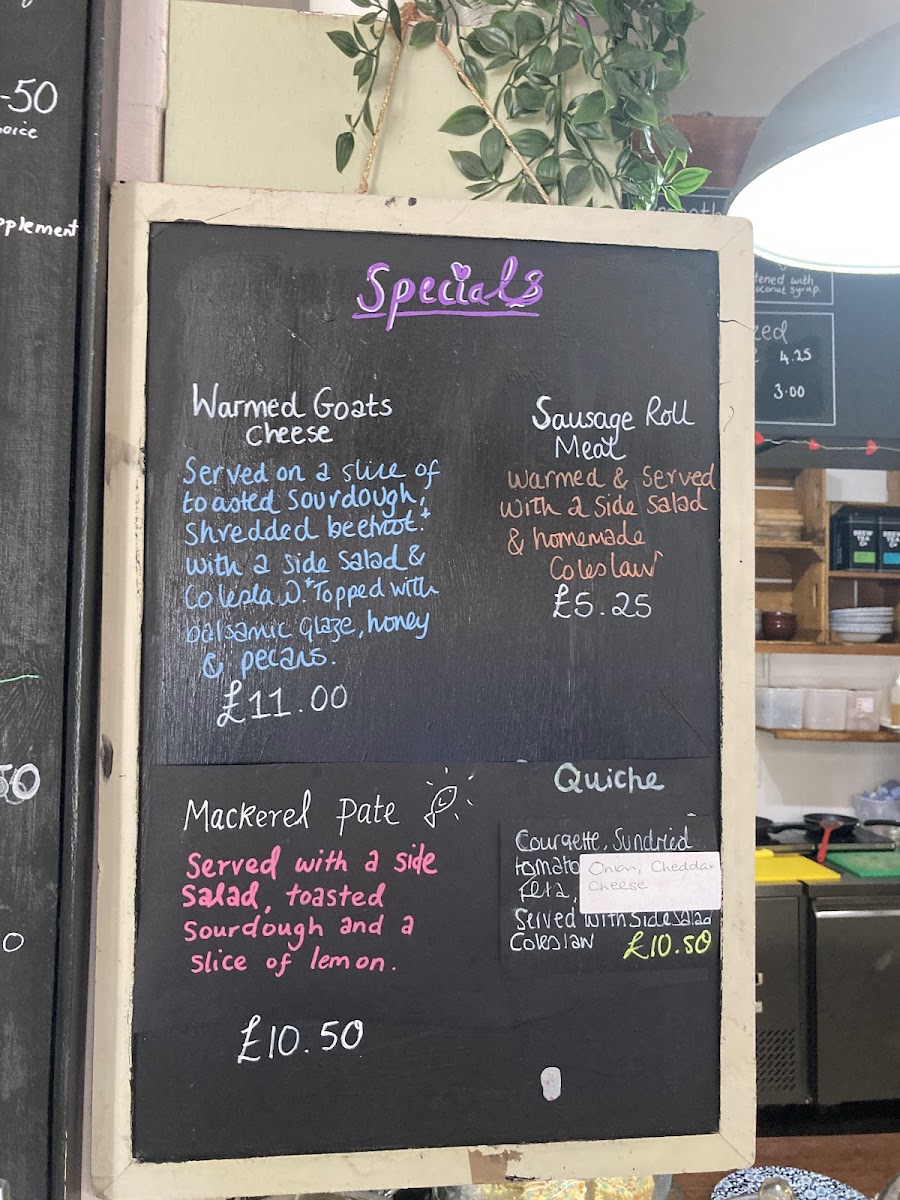 -50
pplement
50
0
Specials
Warmed Goats
Cheese
Served on a slice of
toasted sourdough,
Shredded beetroot.+
with a side salad &
Coleslaw+Topped with
balsamic glaze, honey
& pecans.
£11.00
Sausage Roll
Meat
Warmed & Served
with a side salad
& homemade
Coleslaw
£5.25
Mackerel pate
Served with a side
Salad, toasted
Sourdough and a
Slice of lemon.
£10.50
Quiche
Courgette, Sundried
tomato
Feta,
Onion, Cheddar
Cheese
Served with side salad
Coleslaw £10.50
tened with
oconut syrup.
4.25
3.00
BREW
TEA
BREW
TEA